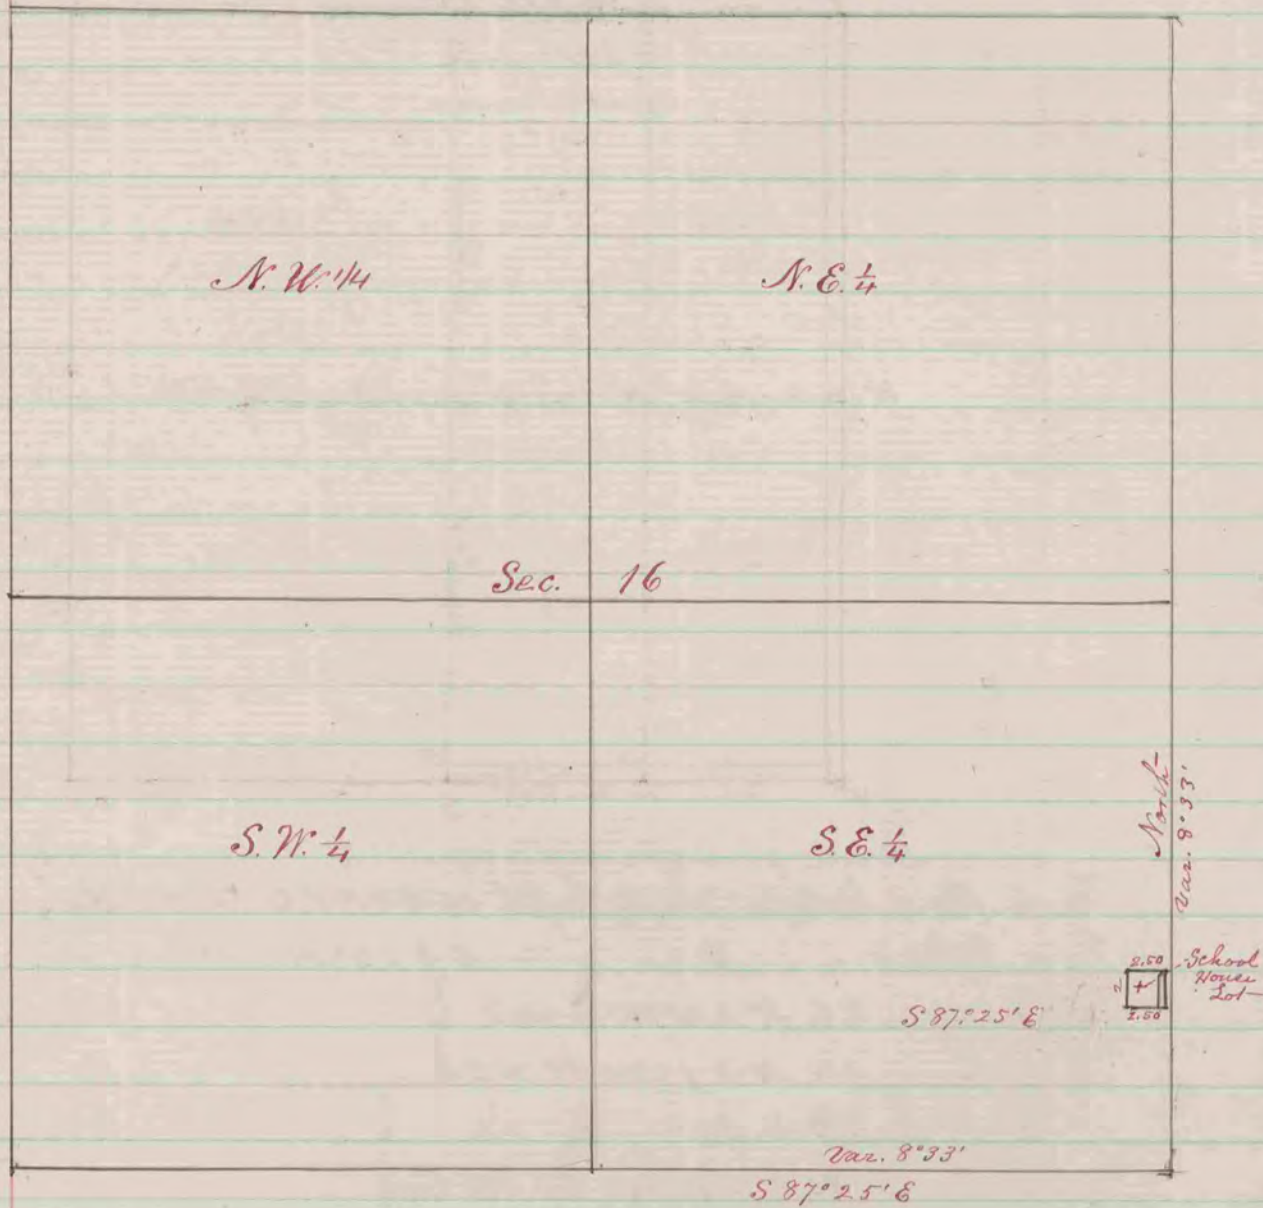 N. W. 1/4
N. E. 1/4
Sec. 16
S. W. 1/4
S. E. 1/4
North
Var. 8°33'
2.50
2
2.50
School
House
Lot
S 87°25' E
Var. 8°33'
S 87°25' E